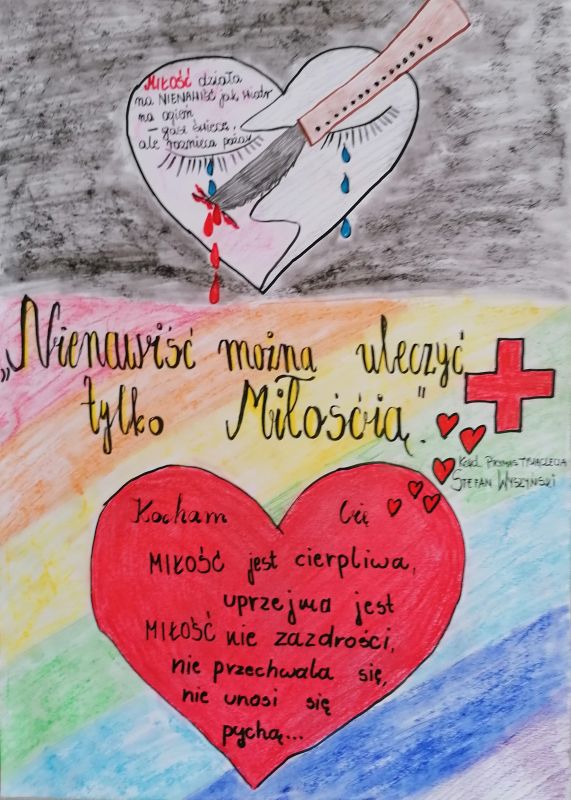 MIŁOŚĆ działa
na NIENAWIŚĆ jak wiatr
na ogień
– gasi świecę,
ale roznieca pożar
„Nienawiść można uleczyć
tylko Miłością."
Kard. Prymas Tysiąclecia
STEFAN WYSZYŃSKI
Kocham Cię
MIŁOŚĆ jest cierpliwa,
uprzejma jest
MIŁOŚĆ nie zazdrości,
nie przechwala się,
nie unosi się
pychą...